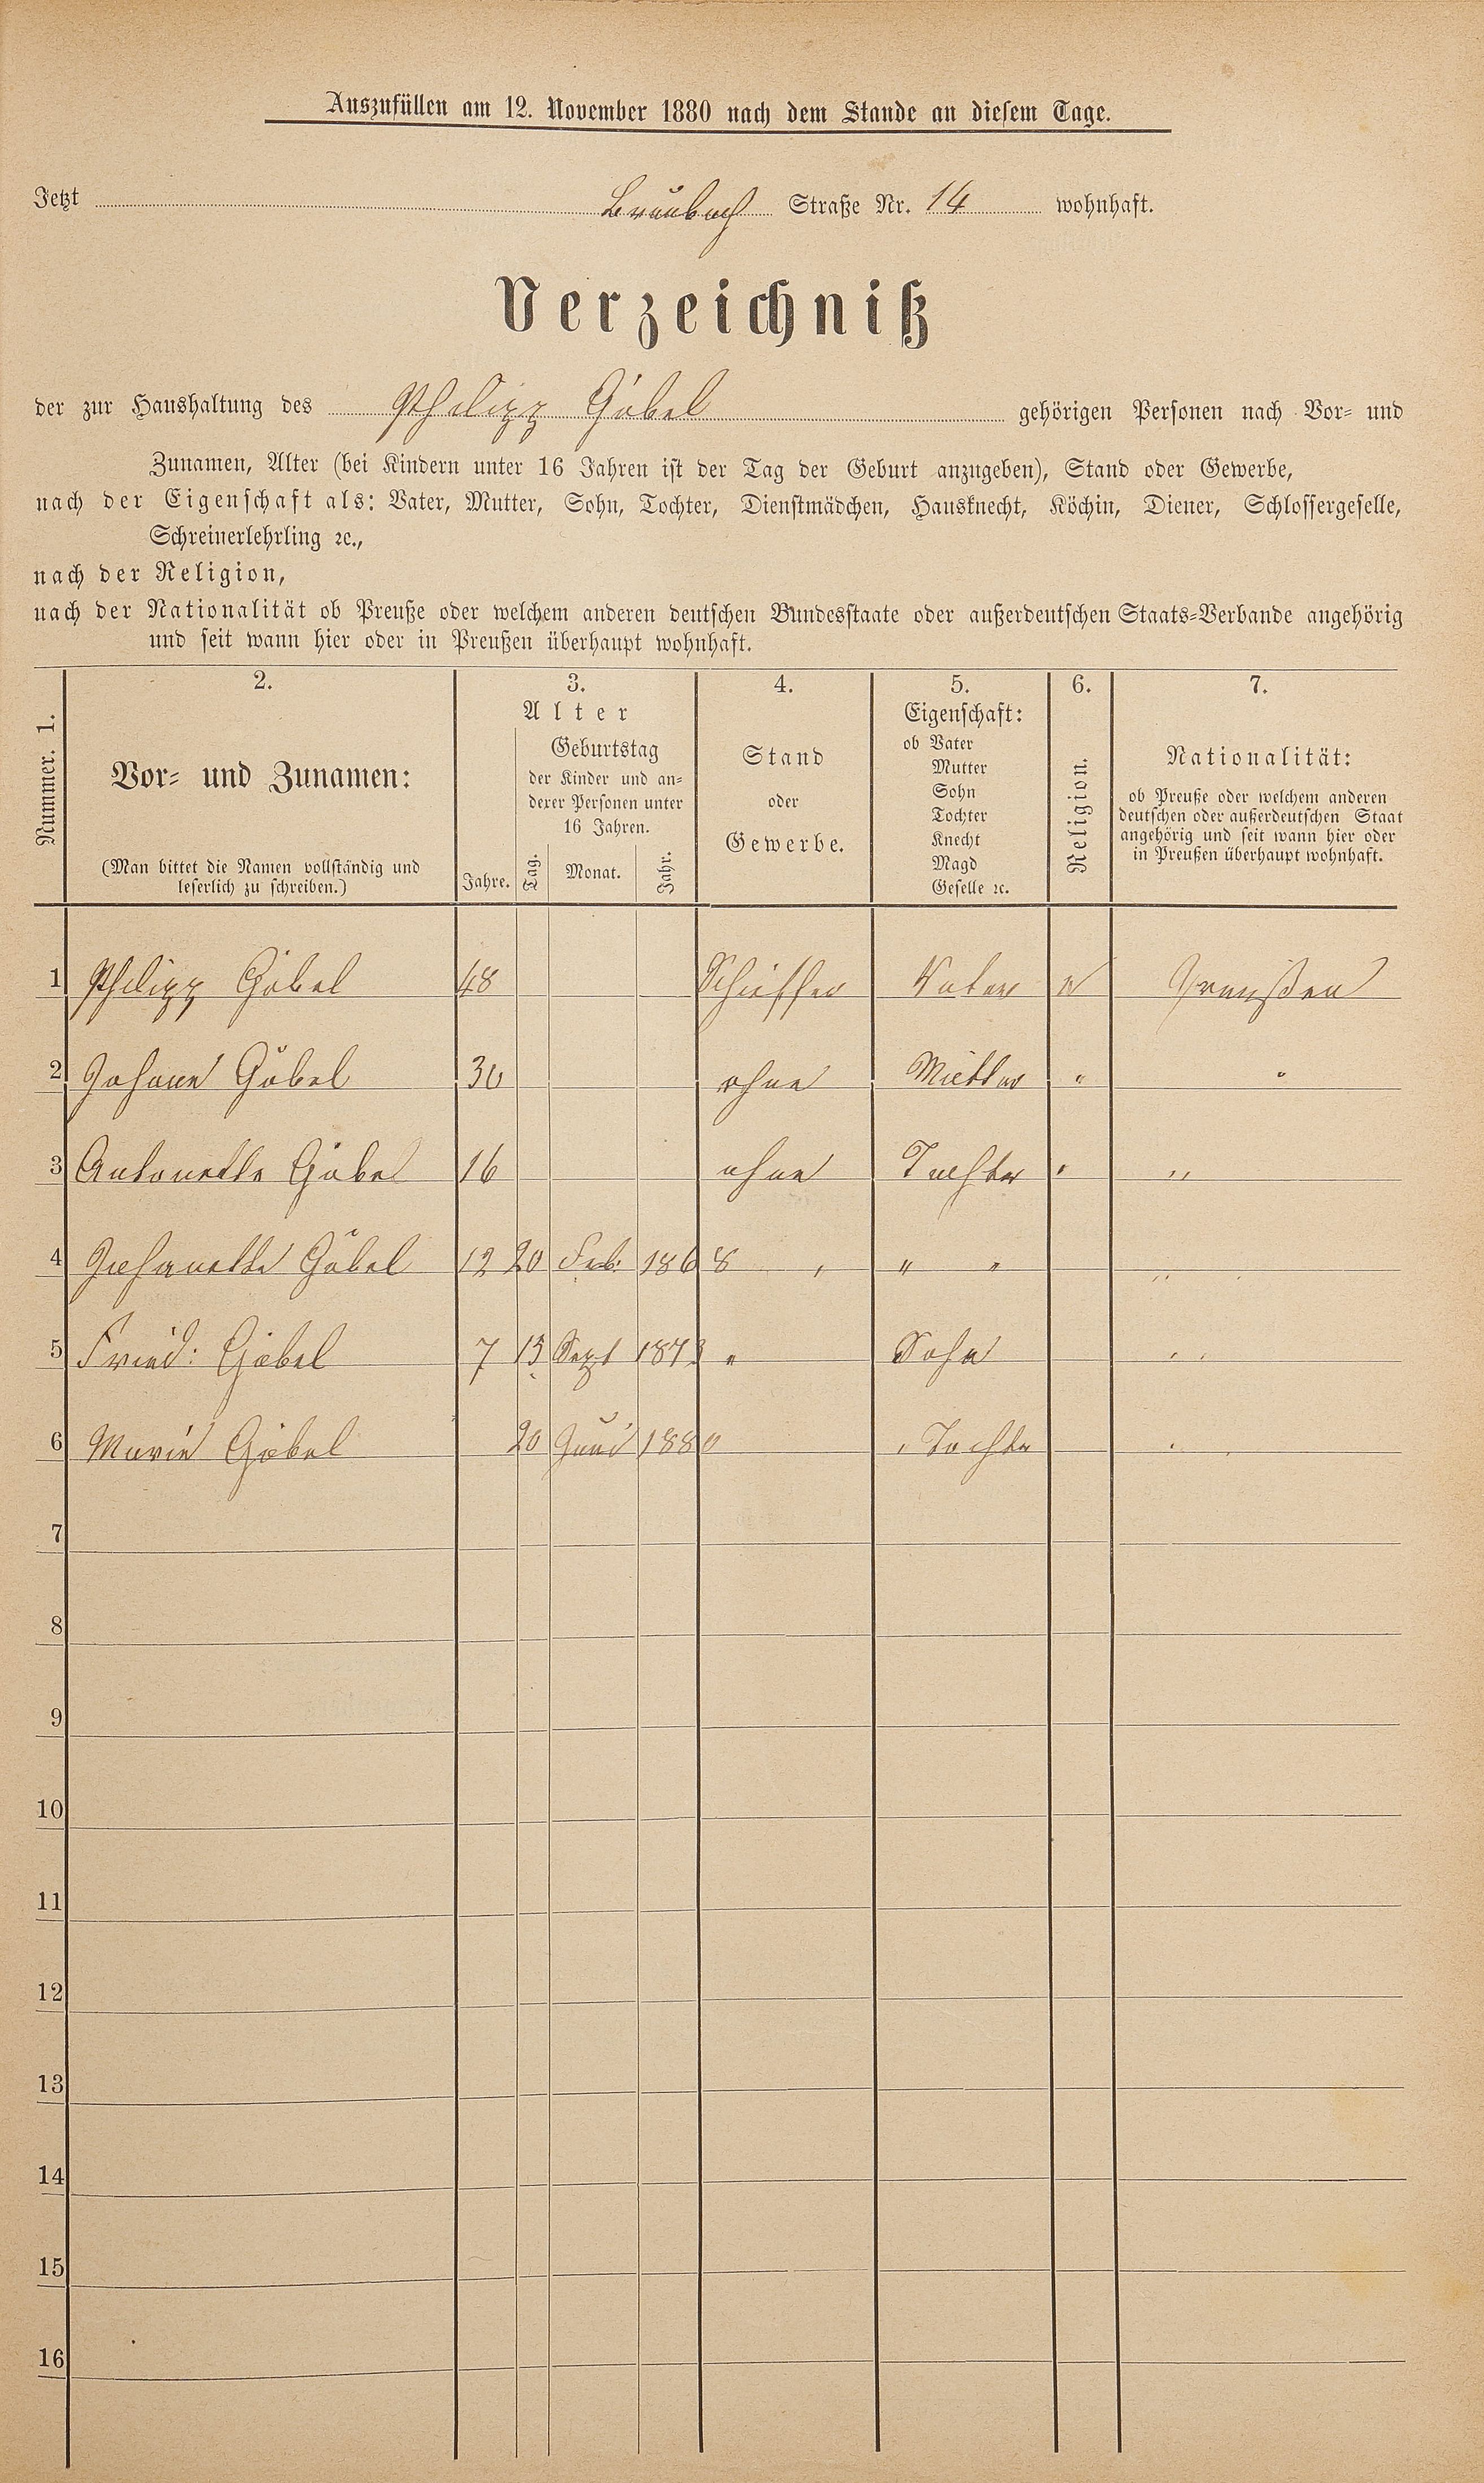 Auszufüllen am 12. November 1880 nach dem Stande an diesem Tage.
Jetzt Braubach Straße Nr. 14 wohnhaft.
Verzeichniß
der zur Haushaltung des Philipp Göbel gehörigen Personen nach Vor- und
Zunamen, Alter (bei Kindern unter 16 Jahren ist der Tag der Geburt anzugeben), Stand oder Gewerbe,
nach der Eigenschaft als: Vater, Mutter, Sohn, Tochter, Dienstmädchen, Hausknecht, Köchin, Diener, Schlossergeselle,
Schreinerlehrling ꝛc.,
nach der Religion,
nach der Nationalität ob Preuße oder welchem anderen deutschen Bundesstaate oder außerdeutschen Staats-Verbande angehörig
und seit wann hier oder in Preußen überhaupt wohnhaft.
Nummer. 1.
2.
Vor- und Zunamen:
(Man bittet die Namen vollständig und
leserlich zu schreiben.)
3.
Alter
Jahre.
Geburtstag
der Kinder und an-
derer Personen unter
16 Jahren.
Tag. Monat. Jahr.
4.
Stand
oder
Gewerbe.
5.
Eigenschaft:
ob Vater
Mutter
Sohn
Tochter
Knecht
Magd
Geselle ꝛc.
6.
Religion.
7.
Nationalität:
ob Preuße oder welchem anderen
deutschen oder außerdeutschen Staat
angehörig und seit wann hier oder
in Preußen überhaupt wohnhaft.
1 Philipp Göbel 48 Schiffer Vater Preußen
2 Johann Göbel 30 ohne Mutter " "
3 Antonette Göbel 16 ohne Tochter " "
4 Johanette Göbel 12 20 Feb: 1868 " " " "
5 Fried: Göbel 7 13 Sept 1873 " Sohn "
6 Marie Göbel 20 Juni 1880 Tochter "
7
8
9
10
11
12
13
14
15
16